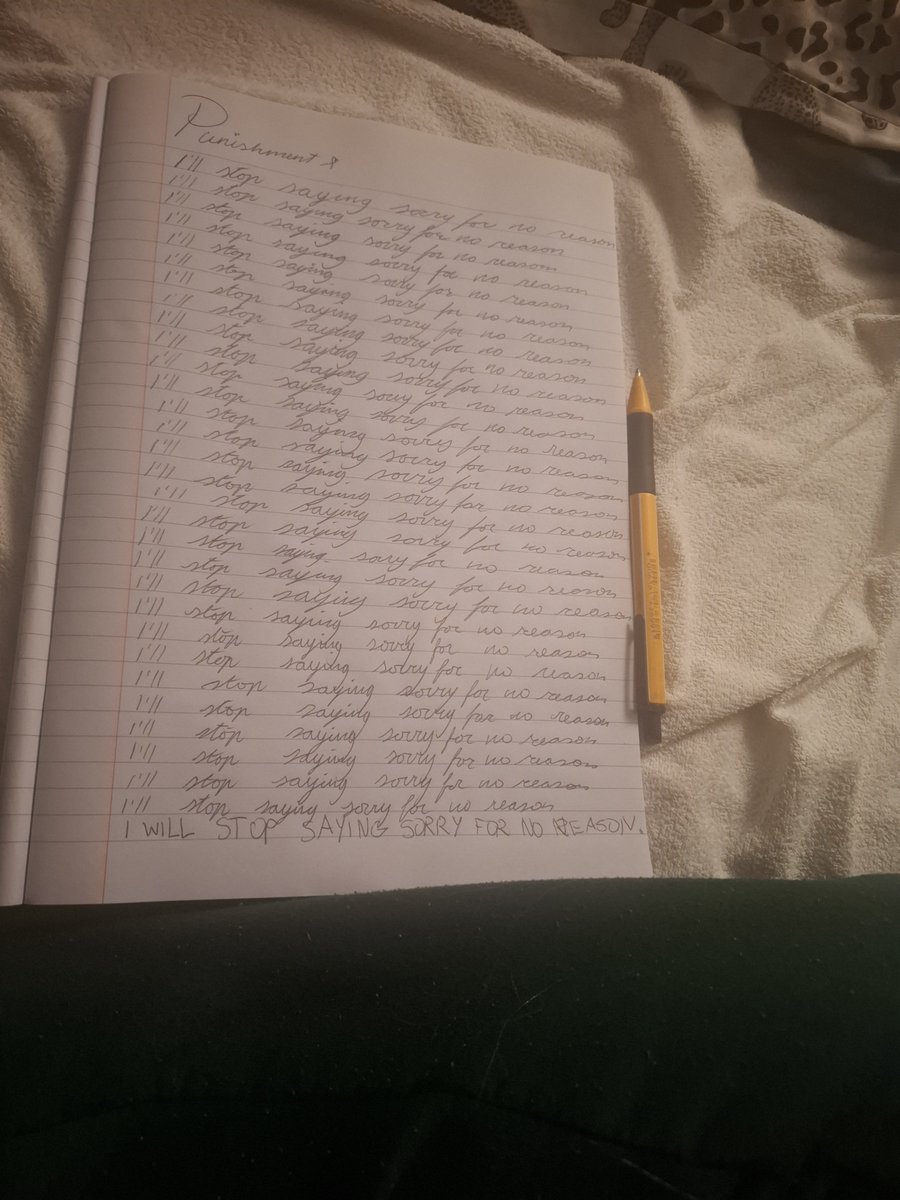 Punishment
I'll stop saying sorry for no reason
I'll stop saying sorry for no reason
I'll stop saying sorry for no reason
I'll stop saying sorry for no reason
I'll stop saying sorry for no reason
I'll stop saying sorry for no reason
I'll stop saying sorry for no reason
I'll stop saying sorry for no reason
I'll stop saying sorry for no reason
I'll stop saying sorry for no reason
I'll stop saying sorry for no reason
I'll stop saying sorry for no reason
I'll stop saying sorry for no reason
I'll stop saying sorry for no reason
I'll stop saying sorry for no reason
I'll stop saying sorry for no reason
I'll stop saying sorry for no reason
I'll stop saying sorry for no reason
I'll stop saying sory for no reason
I'll stop saying sorry for no reason
I'll stop saying sorry for no reason
I'll stop saying sorry for no reason
I'll stop saying sorry for no reason
I'll stop saying sorry for no reason
I'll stop saying sorry for no reason
I'll stop saying sorry for no reason
I'll stop saying sorry for no reason
I'll stop saying sorry for no reason
I'll stop saying sorry for no reason
I'll stop saying sorry for no reason
I WILL STOP SAYING SORRY FOR NO REASON.